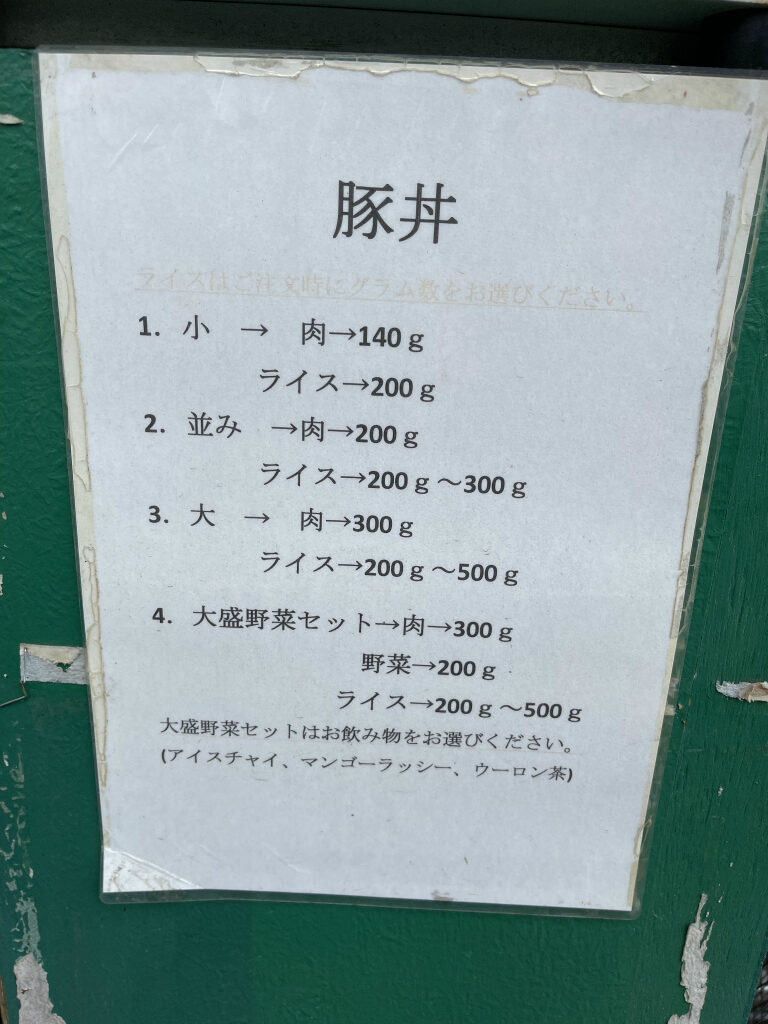 豚丼
ライスはご注文時にグラム数をお選びください。
1. 小 → 肉→140ｇ
ライス→200ｇ
2. 並み →肉→200ｇ
ライス→200ｇ～300ｇ
3. 大 → 肉→300ｇ
ライス→200ｇ～500ｇ
4. 大盛野菜セット→肉→300ｇ
野菜→200ｇ
ライス→200ｇ～500ｇ
大盛野菜セットはお飲み物をお選びください。
(アイスチャイ、マンゴーラッシー、ウーロン茶)